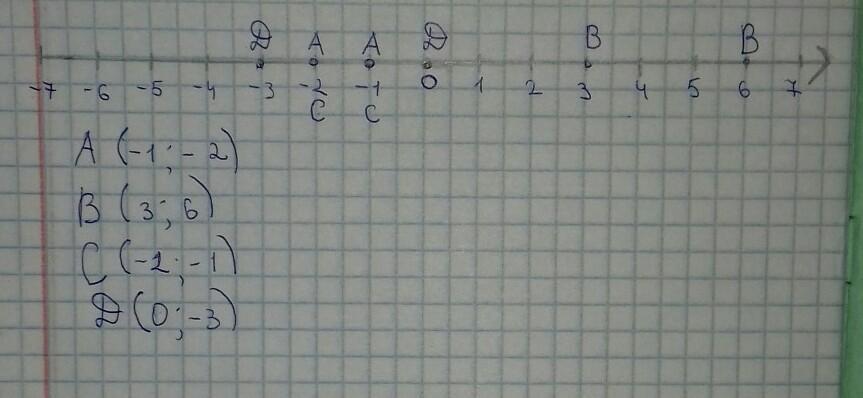 D A A D B B
-7 -6 -5 -4 -3 -2 -1 0 1 2 3 4 5 6 7
C C
A (-1; -2)
B (3; 6)
C (-2; -1)
D (0; -3)